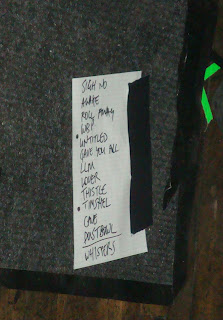 SIGH NO
AWAKE
ROLL AWAY
W&T
• UNTITLED
GAVE YOU ALL
LLM
LOVER
THISTLE
• TIMSHEL
CAVE
DUSTBOWL
WHISPERS